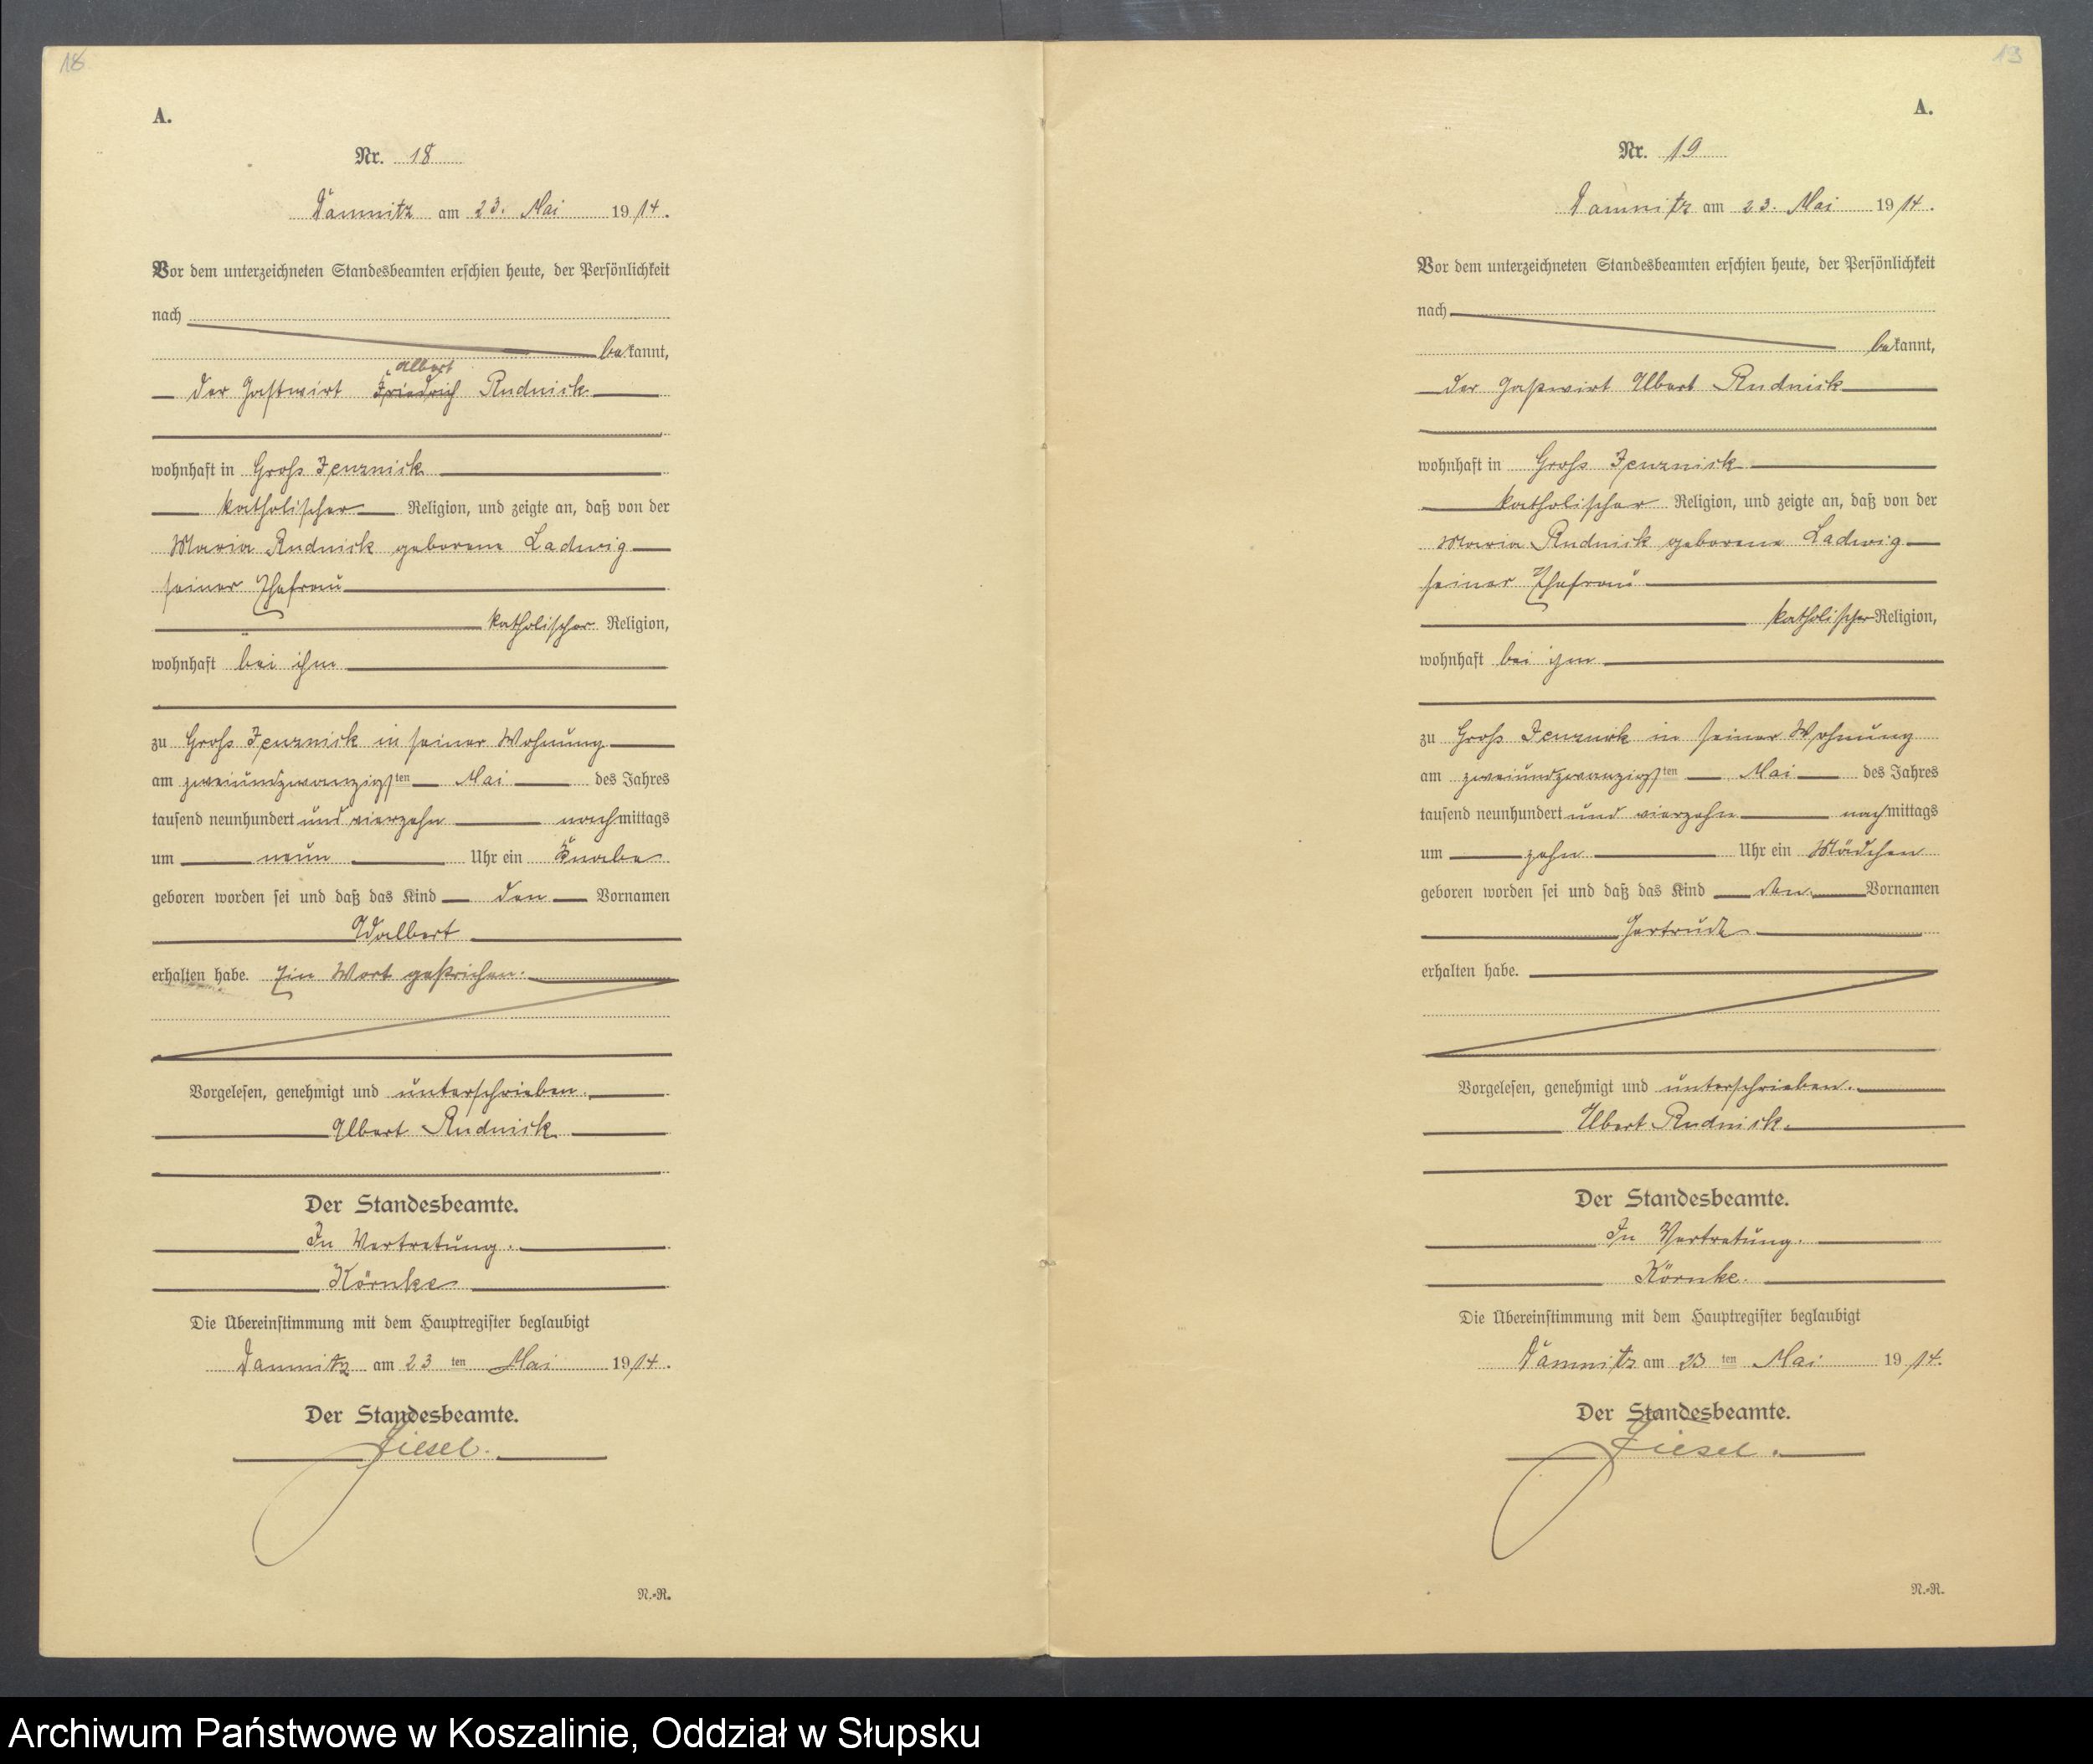 18
A.
Nr. 18
Damnitz am 23. Mai 1914.
Vor dem unterzeichneten Standesbeamten erschien heute, der Persönlichkeit
nach
bekannt,
Albert
der Gastwirt Friedrich Rudnick
wohnhaft in Groß Jenznick
katholischer Religion, und zeigte an, daß von der
Maria Rudnick geborene Ladwig
seiner Ehefrau
katholischer Religion,
wohnhaft bei ihm
zu Groß Jenznick in seiner Wohnung
am zweiundzwanzigsten Mai des Jahres
tausend neunhundert und vierzehn nachmittags
um neun Uhr ein Knabe
geboren worden sei und daß das Kind den Vornamen
Adalbert
erhalten habe. Ein Wort gestrichen.
Vorgelesen, genehmigt und unterschrieben.
Albert Rudnick
Der Standesbeamte.
In Vertretung.
Körnke
Die Übereinstimmung mit dem Hauptregister beglaubigt
Damnitz am 23 ten Mai 1914.
Der Standesbeamte.
N.-R.
19
A.
Nr. 19
Damnitz am 23. Mai 1914.
Vor dem unterzeichneten Standesbeamten erschien heute, der Persönlichkeit
nach
bekannt,
der Gastwirt Albert Rudnick
wohnhaft in Groß Jenznick
katholischer Religion, und zeigte an, daß von der
Maria Rudnick geborene Ladwig
seiner Ehefrau
katholischer Religion,
wohnhaft bei ihm
zu Groß Jenznick in seiner Wohnung
am zweiundzwanzigsten Mai des Jahres
tausend neunhundert und vierzehn nachmittags
um zehn Uhr ein Mädchen
geboren worden sei und daß das Kind den Vornamen
Gertrude
erhalten habe.
Vorgelesen, genehmigt und unterschrieben.
Albert Rudnick.
Der Standesbeamte.
In Vertretung.
Körnke.
Die Übereinstimmung mit dem Hauptregister beglaubigt
Damnitz am 23 ten Mai 1914.
Der Standesbeamte.
N.-R.
Archiwum Państwowe w Koszalinie, Oddział w Słupsku